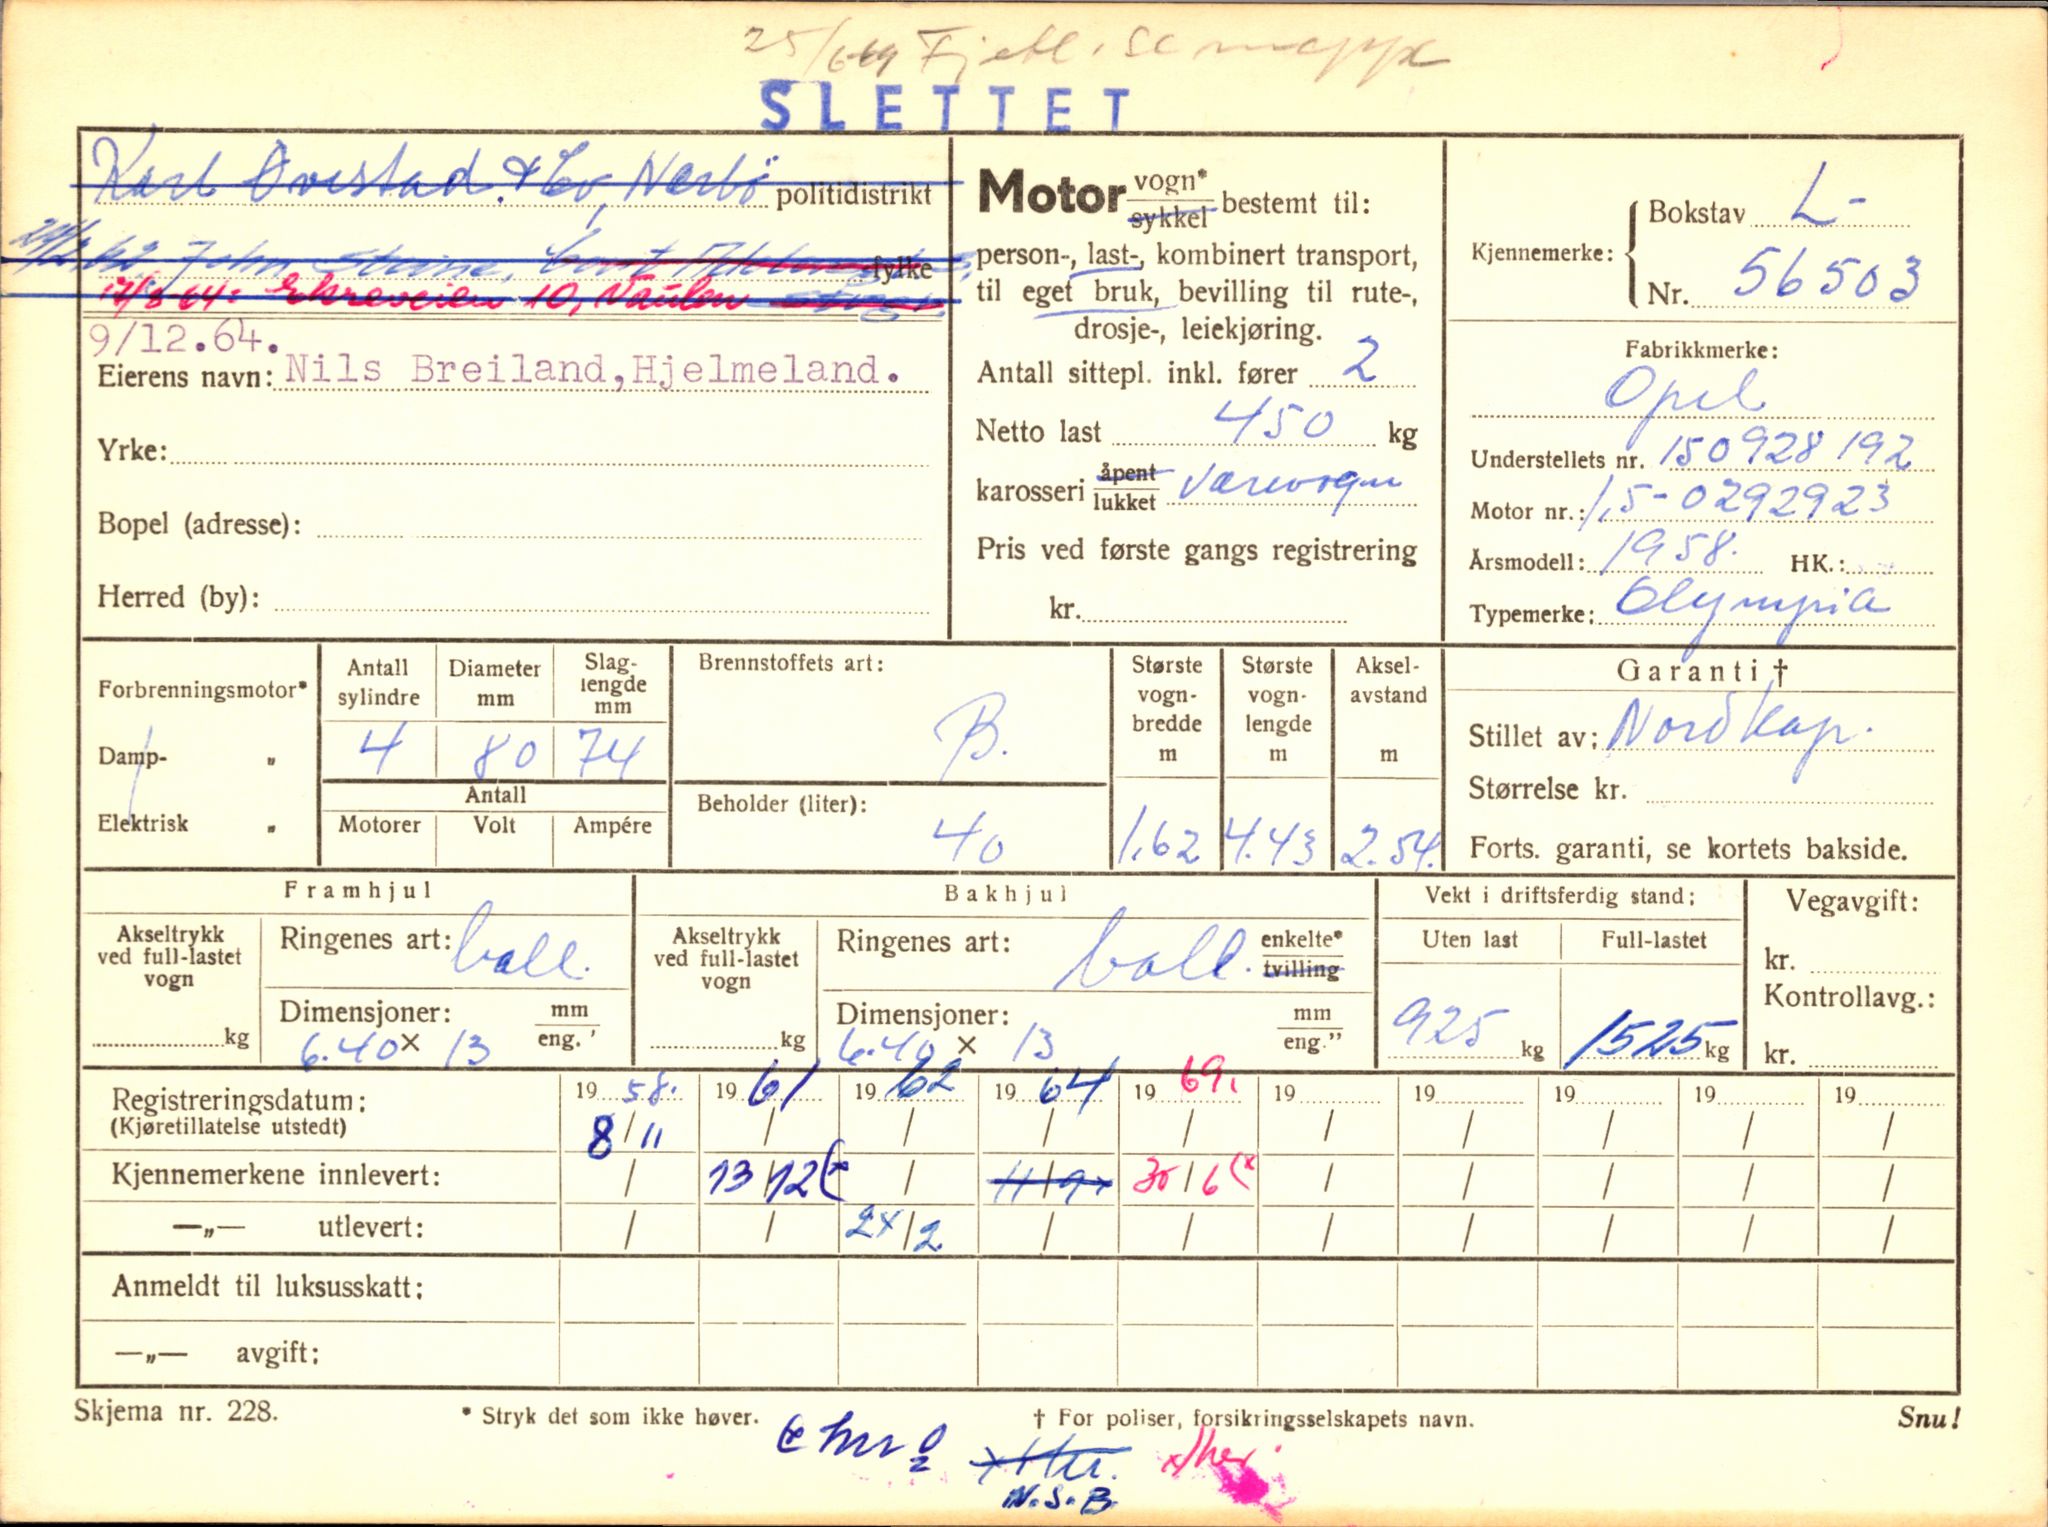 25/6-69 Fjetl. se mappe
SLETTET
Karl Ovestad & Co, Nærbö politidistrikt
24/2.62 John Steine, fylke
17/8-64: Ekreveien 10, Vaulen
9/12.64.
Eierens navn: Nils Breiland, Hjelmeland.
Yrke:
Bopel (adresse):
Herred (by):
Motor vogn* sykkel bestemt til:
person-, last-, kombinert transport,
til eget bruk, bevilling til rute-,
drosje-, leiekjøring.
Antall sittepl. inkl. fører 2
Netto last 450 kg
karosseri åpent lukket varevogn
Pris ved første gangs registrering
kr.
Kjennemerke: Bokstav L-
Nr. 56503
Fabrikkmerke:
Opel
Understellets nr. 150928192
Motor nr.: 1,5-0292923
Årsmodell: 1958. HK.:
Typemerke: Olympia
Forbrenningsmotor*
Damp- „
Elektrisk „
Antall sylindre Diameter mm Slag-lengde mm
4 80 74
Antall
Motorer Volt Ampére
Brennstoffets art:
B.
Beholder (liter):
40
Største vogn-bredde m
1,62
Største vogn-lengde m
4.43
Aksel-avstand m
2.54.
Garanti †
Stillet av: Nordkap.
Størrelse kr.
Forts. garanti, se kortets bakside.
Framhjul
Akseltrykk ved full-lastet vogn
kg
Ringenes art: ball.
Dimensjoner: mm eng.'
6.40 × 13
Bakhjul
Akseltrykk ved full-lastet vogn
kg
Ringenes art: ball. enkelte* tvilling
Dimensjoner: mm eng."
6.40 × 13
Vekt i driftsferdig stand:
Uten last Full-lastet
925 kg 1525 kg
Vegavgift:
kr.
Kontrollavg.:
kr.
Registreringsdatum: 19 58. 19 61 19 62 19 64 19 69. 19 19 19 19 19
(Kjøretillatelse utstedt) 8/11 / / / / / / / / /
Kjennemerkene innlevert: / 13/12(x / 11/9x 30/6(x / / / / /
—„— utlevert: / / 24/2 / / / / / / /
Anmeldt til luksusskatt:
—„— avgift:
Skjema nr. 228.
* Stryk det som ikke høver.
† For poliser, forsikringsselskapets navn.
Snu!
x her.
N.S.B.
x/her.